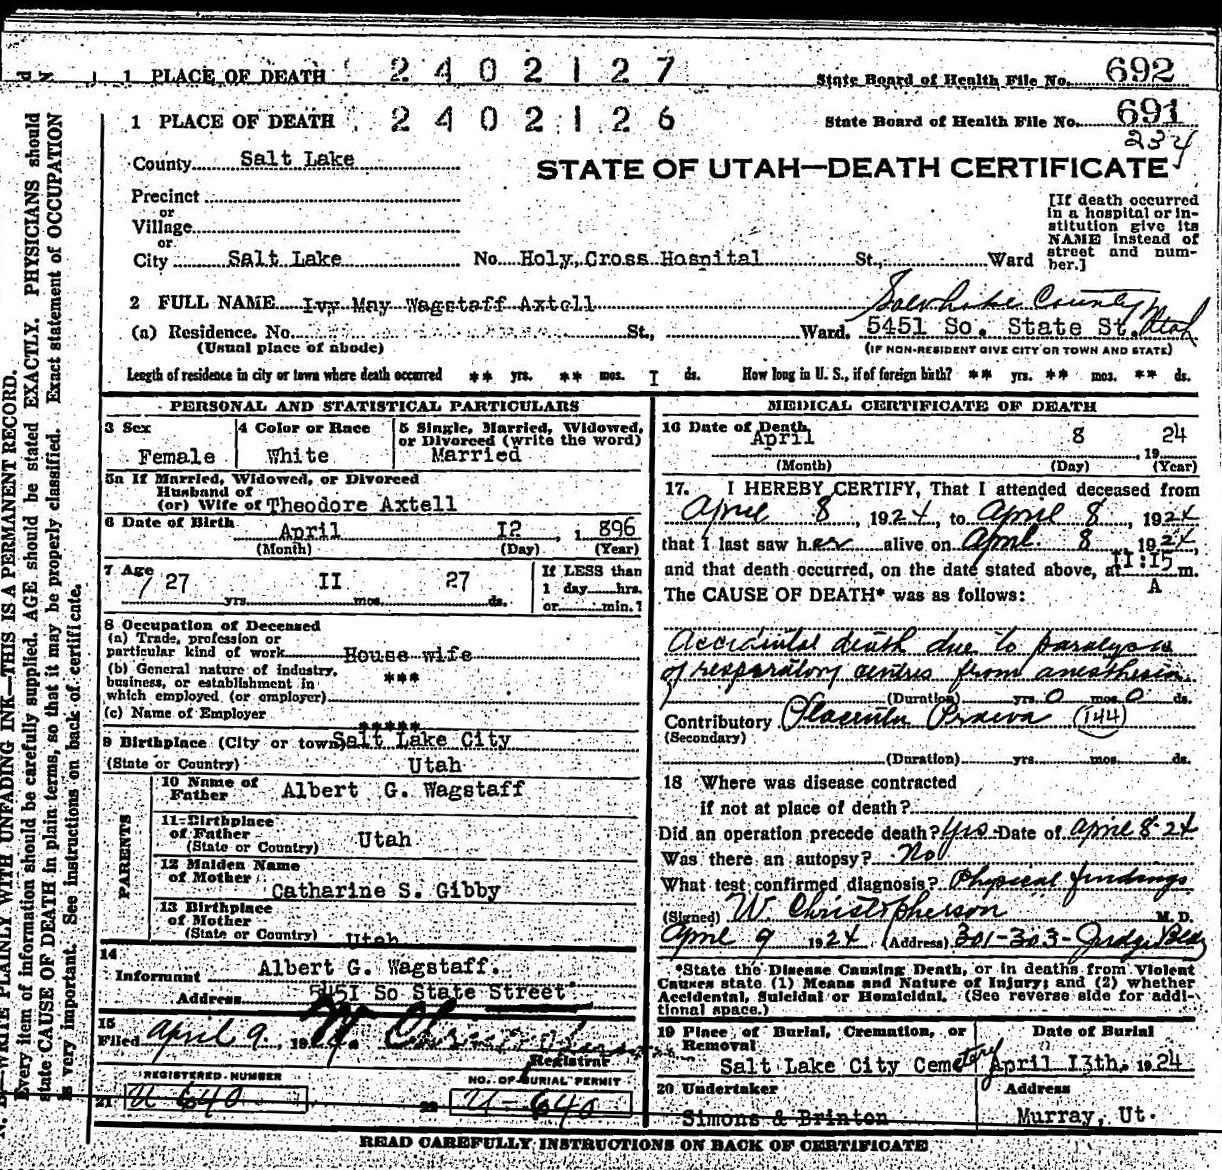 1 PLACE OF DEATH 2402127 State Board of Health File No. 692
1 PLACE OF DEATH 2402126 State Board of Health File No. 691
234
County Salt Lake
STATE OF UTAH—DEATH CERTIFICATE
Precinct
or
Village
or
City Salt Lake No. Holy Cross Hospital St., Ward
[If death occurred
in a hospital or in-
stitution give its
NAME instead of
street and num-
ber.]
2 FULL NAME Ivy May Wagstaff Axtell
Salt Lake County Utah
(a) Residence. No. St., Ward. 5451 So. State St.
(Usual place of abode) (IF NON-RESIDENT GIVE CITY OR TOWN AND STATE)
Length of residence in city or town where death occurred ** yrs. ** mos. I ds. How long in U. S., if of foreign birth? ** yrs. ** mos. ** ds.
PERSONAL AND STATISTICAL PARTICULARS
3 Sex
Female
4 Color or Race
White
5 Single, Married, Widowed,
or Divorced (write the word)
Married
5a If Married, Widowed, or Divorced
Husband of
(or) Wife of Theodore Axtell
6 Date of Birth April I2, 1896
(Month) (Day) (Year)
7 Age
27 II 27
yrs. mos. ds.
If LESS than
1 day hrs.
or min.?
8 Occupation of Deceased
(a) Trade, profession or
particular kind of work House wife
(b) General nature of industry,
business, or establishment in
which employed (or employer) ***
(c) Name of Employer
*****
9 Birthplace (City or town) Salt Lake City
(State or Country) Utah
PARENTS
10 Name of
Father Albert G. Wagstaff
11 Birthplace
of Father
(State or Country) Utah
12 Maiden Name
of Mother
Catharine S. Gibby
13 Birthplace
of Mother
(State or Country) Utah
14
Informant Albert G. Wagstaff.
Address 545I So State Street
15
Filed April 9, 19
Registrar
REGISTERED NUMBER
21 U 640
NO. OF BURIAL PERMIT
22 U-640
MEDICAL CERTIFICATE OF DEATH
16 Date of Death
April 8 , 19 24
(Month) (Day) (Year)
17. I HEREBY CERTIFY, That I attended deceased from
April 8, 1924, to April 8, 1924
that I last saw her alive on April 8 1924,
and that death occurred, on the date stated above, at II:I5 A m.
The CAUSE OF DEATH* was as follows:
Accidental death due to paralysis
of respiratory centres from anesthesia
(Duration) yrs. 0 mos. 0 ds.
Contributory Placenta Praevia (144)
(Secondary)
(Duration) yrs. mos. ds.
18 Where was disease contracted
if not at place of death?
Did an operation precede death? Yes Date of April 8-24
Was there an autopsy? No
What test confirmed diagnosis? Physical findings
(Signed) W. Christopherson M. D.
April 9 1924 (Address) 301-303- Judge Bldg
*State the Disease Causing Death, or in deaths from Violent
Causes state (1) Means and Nature of Injury; and (2) whether
Accidental, Suicidal or Homicidal. (See reverse side for addi-
tional space.)
19 Place of Burial, Cremation, or
Removal
Salt Lake City Cemetery
Date of Burial
April I3th. 1924
20 Undertaker
Simons & Brinton
Address
Murray, Ut.
READ CAREFULLY INSTRUCTIONS ON BACK OF CERTIFICATE
WRITE PLAINLY WITH UNFADING INK—THIS IS A PERMANENT RECORD.
Every item of information should be carefully supplied. AGE should be stated EXACTLY. PHYSICIANS should
state CAUSE OF DEATH in plain terms, so that it may be properly classified. Exact statement of OCCUPATION
is very important. See instructions on back of certificate.